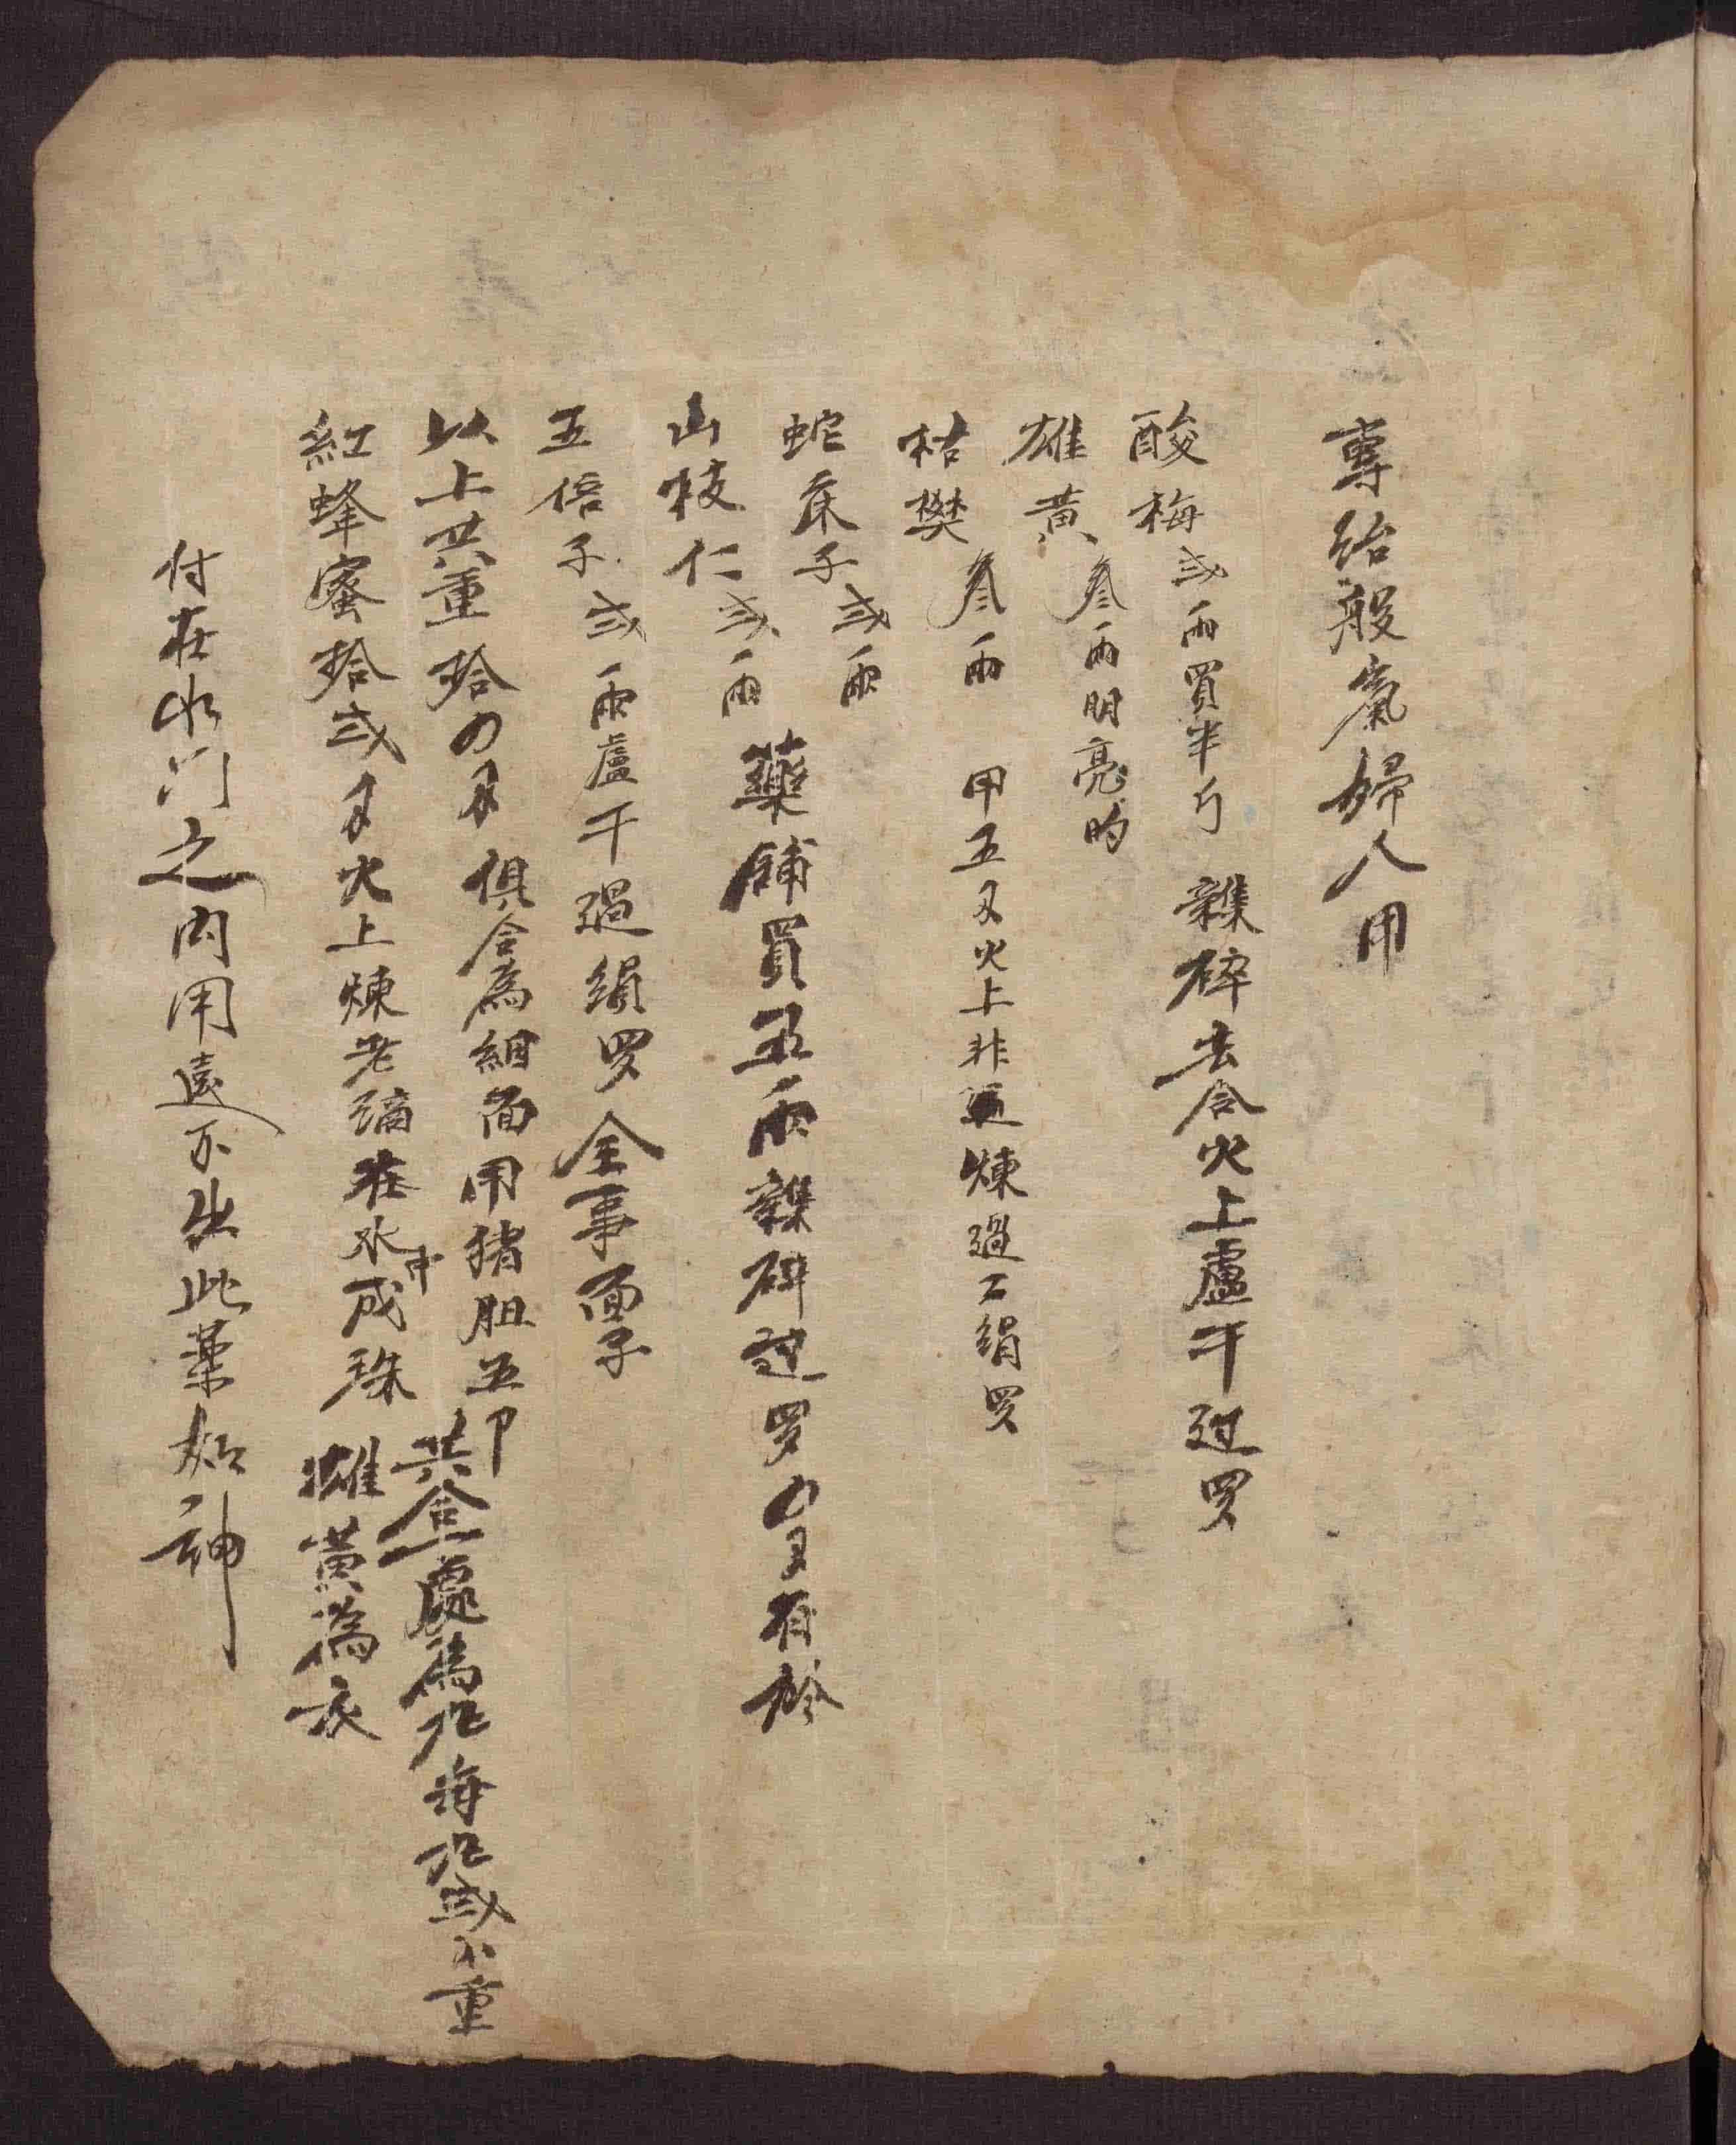 專治般氣婦人用
酸梅弍兩買半斤 雜碎去合火上盧干过罗
雄黃叁兩明亮的
枯樊叁兩 用五又火上非 煉過工絹罗
蛇床子弍兩
山枝仁弍兩 藥鋪買五兩雜碎过罗 有於
五倍子弍兩盧干過絹罗全事面子
以上共重拾 俱合為細面用猪胆五卩共合一處為丸每丸弍小重
紅蜂蜜拾弍 火上煉老滴在水中成珠 雄黃為衣
付在水门之内用遠不出此藥如神